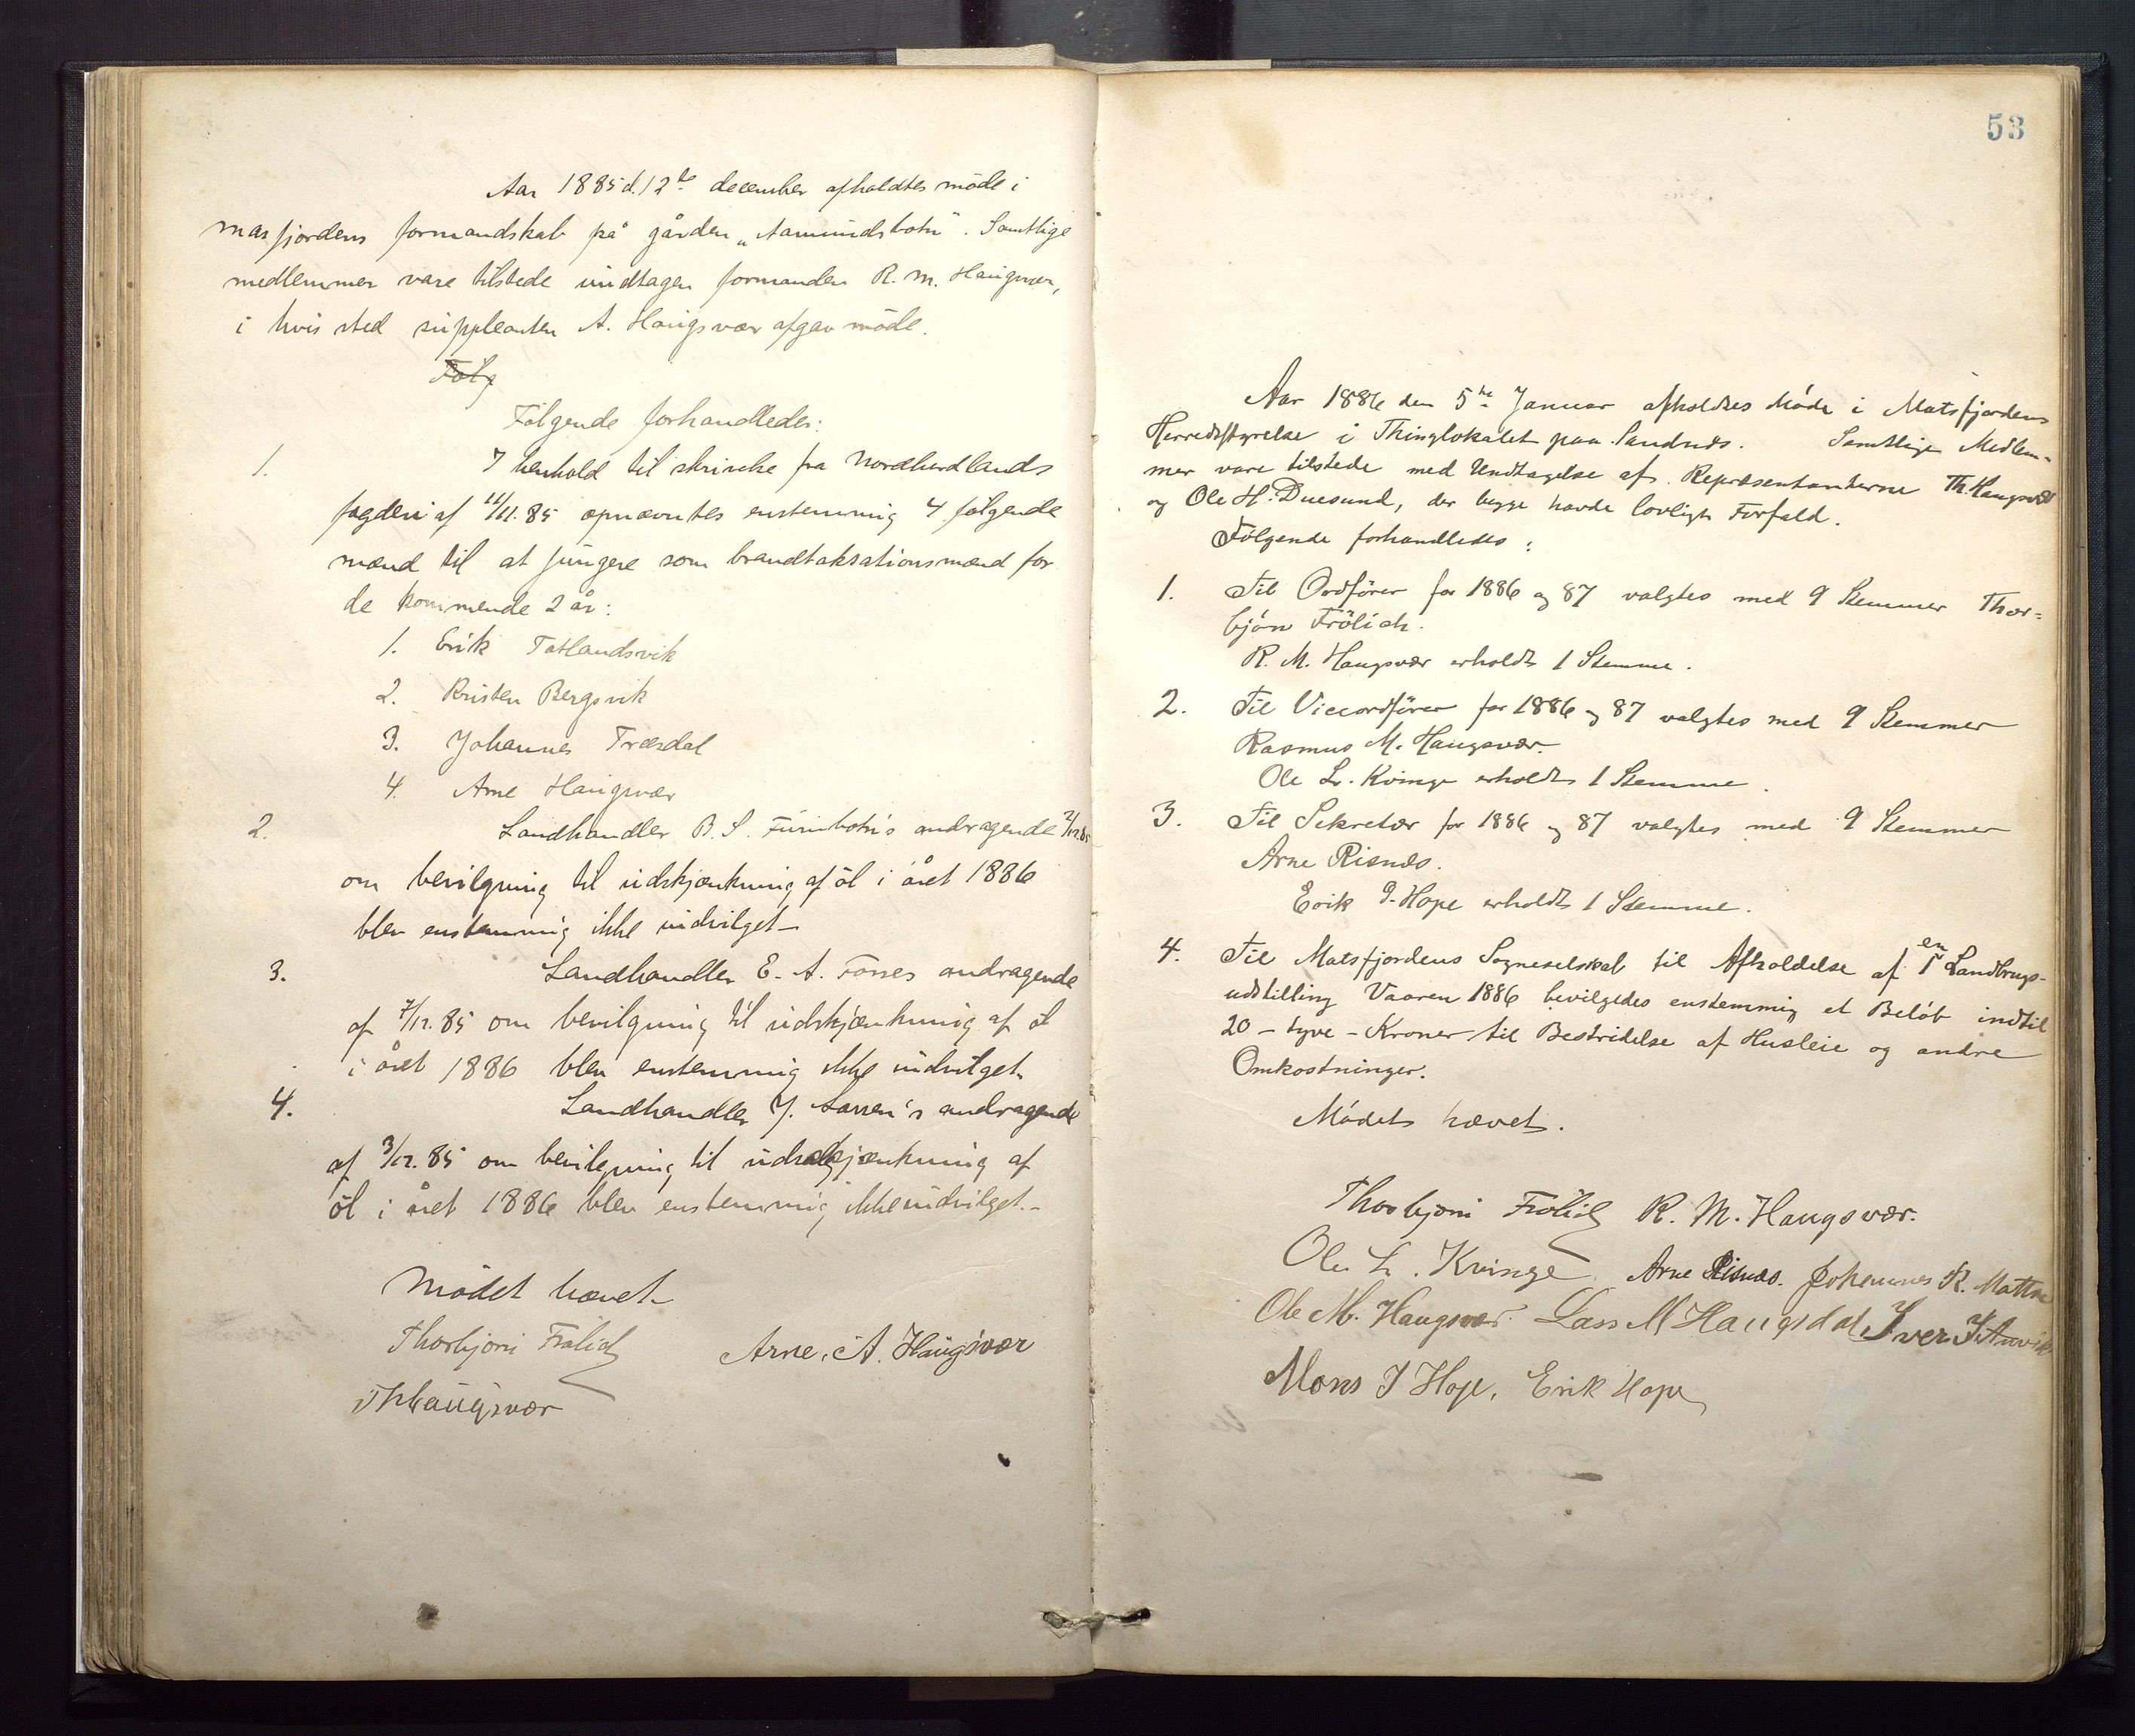 Aar 1885 d. 12te december afholdtes möde i
masfjordens formandskab på gården „Aamundsbotn“. Samtlige
medlemmer vare tilstede undtagen formanden R. M. Haugsvær,
i hvis sted suppleanten A. Haugsvær afgav möde.
Følg
Følgende forhandledes:
1. I henhold til skrivelse fra Nordhordlands
fogderi af 11/11.85 opnævntes enstemmig 4 følgende
mænd til at fungere som brandtaksationsmænd for
de kommende 2 år:
1. Erik Totlandsvik
2. Kristen Bergsvik
3. Johannes Træsdal
4. Arne Haugsvær
2. Landhandler B. S. Furubotn's andragende 2/12.85
om bevilgning til udskjænkning af öl i året 1886
blev enstemmig ikke indvilget—
3. Landhandler E. A. Fosses andragende
af 7/12.85 om bevilgning til udskjænkning af öl
i året 1886 blev enstemmig ikke indvilget.
4. Landhandler J. 's andragende
af 3/12.85 om bevilgning til udskjænkning af
öl i året 1886 blev enstemmig ikke indvilget.—
Mödet hævet—
Thorbjörn Frölich Arne. A. Haugsvær
THaugsvær
53
Aar 1886 den 5te Januar afholdtes Møde i Matsfjordens
Herredsstyrelse i Thinglokalet paa Sandnæs. Samtlige Medlem-
mer vare tilstede med Undtagelse af Repræsentanterne Th. Haugsvær
og Ole H. Duesund, der begge havde lovligt Forfald.
Følgende forhandledes:
1. Til Ordfører for 1886 og 87 valgtes med 9 Stemmer Thor=
björn Frölich.
R. M. Haugsvær erholdt 1 Stemme.
2. Til Viceordfører for 1886 og 87 valgtes med 9 Stemmer
Rasmus M. Haugsvær.
Ole L. Kvinge erholdt 1 Stemme.
3. Til Sekretær for 1886 og 87 valgtes med 9 Stemmer
Arne Risnæs.
Erik Hope erholdt 1 Stemme.
4. Til Matsfjordens Sogneselskab til Afholdelse af en Landbrugs-
udstilling Vaaren 1886 bevilgedes enstemmig et Beløb indtil
20 – tyve – Kroner til Bestridelse af Husleie og andre
Omkostninger.
Mødet hævet.
Thorbjörn Frölich R. M. Haugsvær.
Ole L. Kvinge Arne Risnæs. Johannes R. Mattre
Ole M. Haugsvær. Lars M Haugsdal Iver
Mons J Hope, Erik Hope